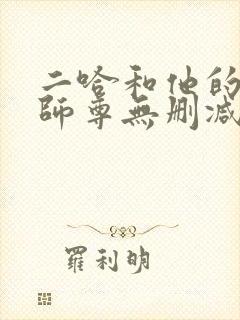 二哈和他的
師尊無删減
羅利明